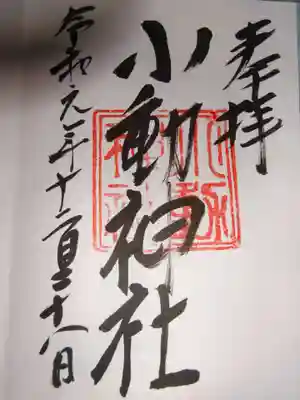 奉拝
小動神社
令和元年十二月二十八日